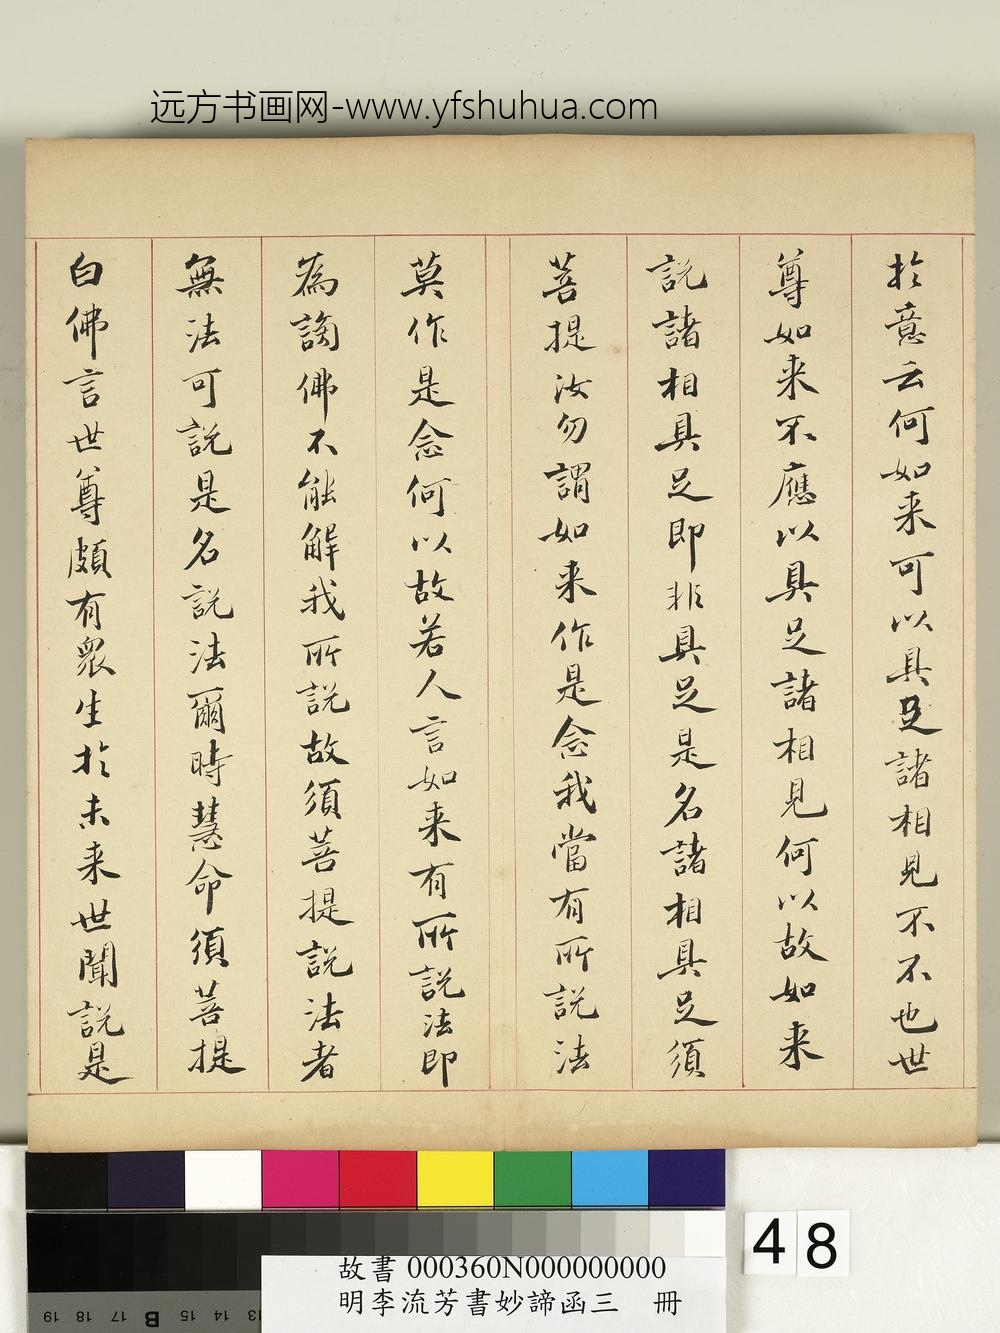 远方书画网-www.yfshuhua.com
於意云何如来可以具足諸相見不不也世
尊如来不應以具足諸相見何以故如来
説諸相具足即非具足是名諸相具足須
菩提汝勿謂如来作是念我當有所説法
莫作是念何以故若人言如来有所説法即
為謗佛不能解我所説故須菩提説法者
無法可説是名説法爾時慧命須菩提
白佛言世尊頗有衆生於未来世聞説是
48
故書 000360N000000000
明李流芳書妙諦函三 冊
B
19 18 17 16 15 14 13